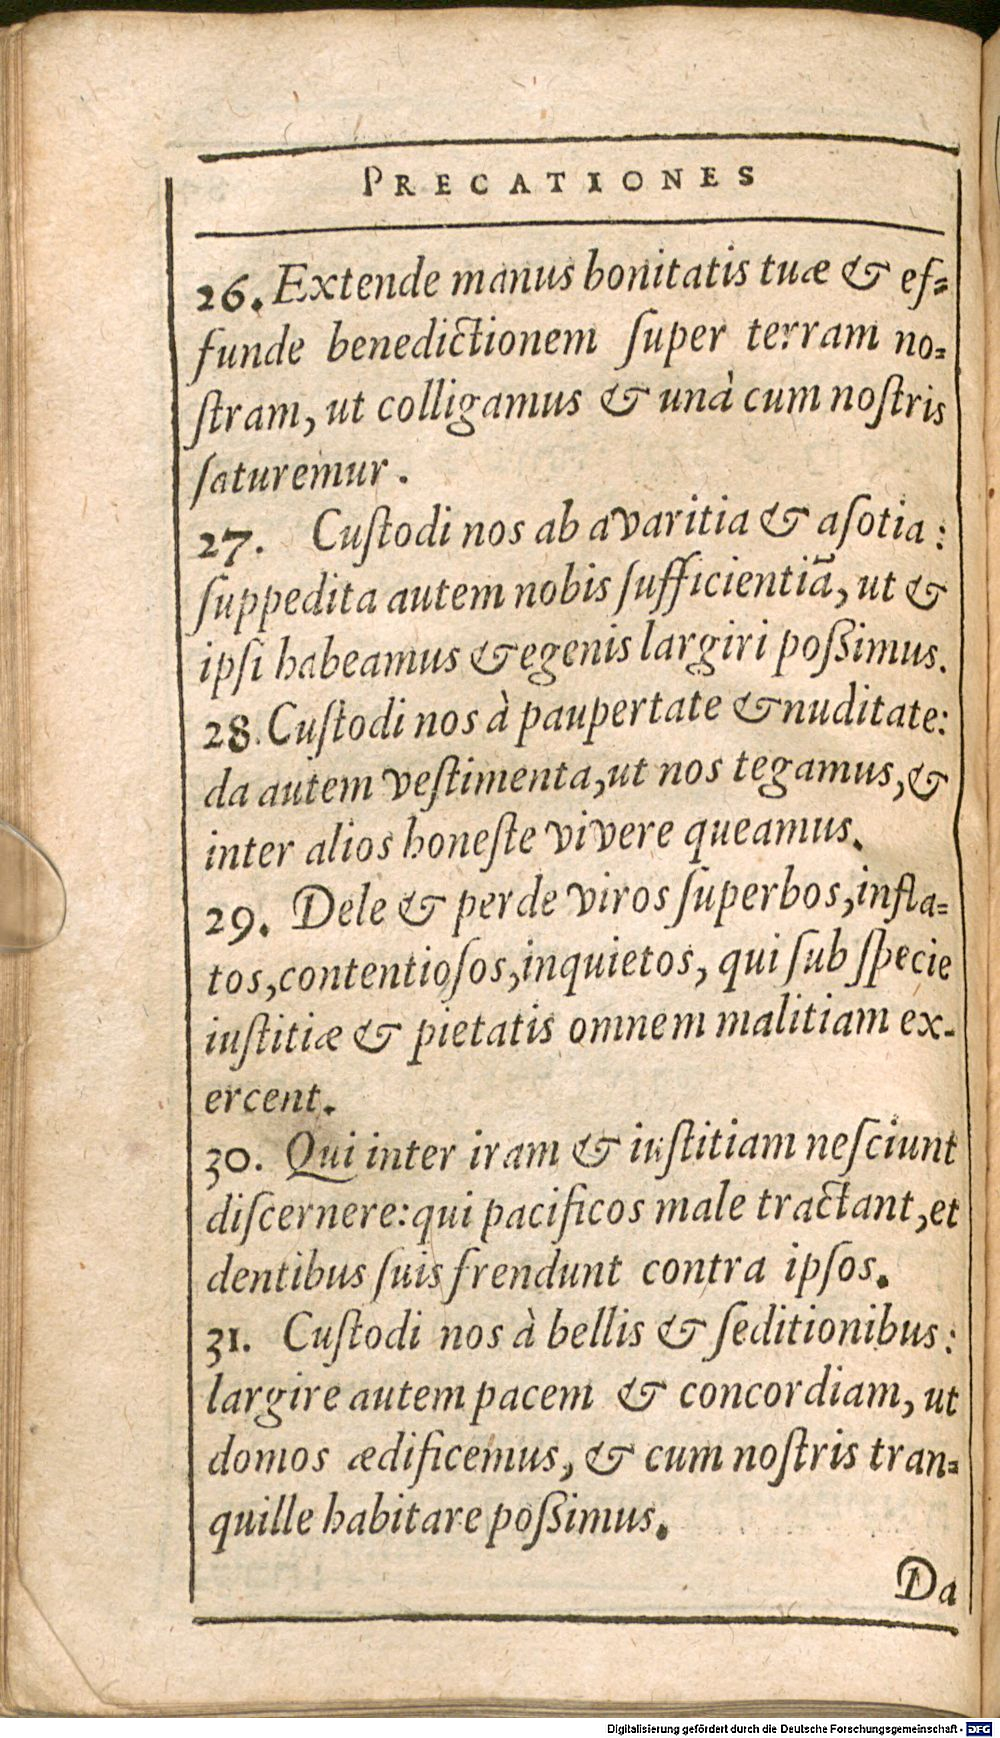 PRECATIONES
26. Extende manus bonitatis tuæ & ef-
funde benedictionem ſuper terram no-
ſtram, ut colligamus & unà cum noſtris
ſaturemur.
27. Cuſtodi nos ab avaritia & aſotia:
ſuppedita autem nobis ſufficientiā, ut &
ipſi habeamus & egenis largiri poſsimus.
28. Cuſtodi nos à paupertate & nuditate:
da autem veſtimenta, ut nos tegamus, &
inter alios honeſte vivere queamus.
29. Dele & perde viros ſuperbos, infla-
tos, contentioſos, inquietos, qui ſub ſpecie
iuſtitiæ & pietatis omnem malitiam ex-
ercent.
30. Qui inter iram & iuſtitiam neſciunt
diſcernere: qui pacificos male tractant, et
dentibus ſuis frendunt contra ipſos.
31. Cuſtodi nos à bellis & ſeditionibus:
largire autem pacem & concordiam, ut
domos ædificemus, & cum noſtris tran-
quille habitare poſsimus.
Da
Digitalisierung gefördert durch die Deutsche Forschungsgemeinschaft - DFG